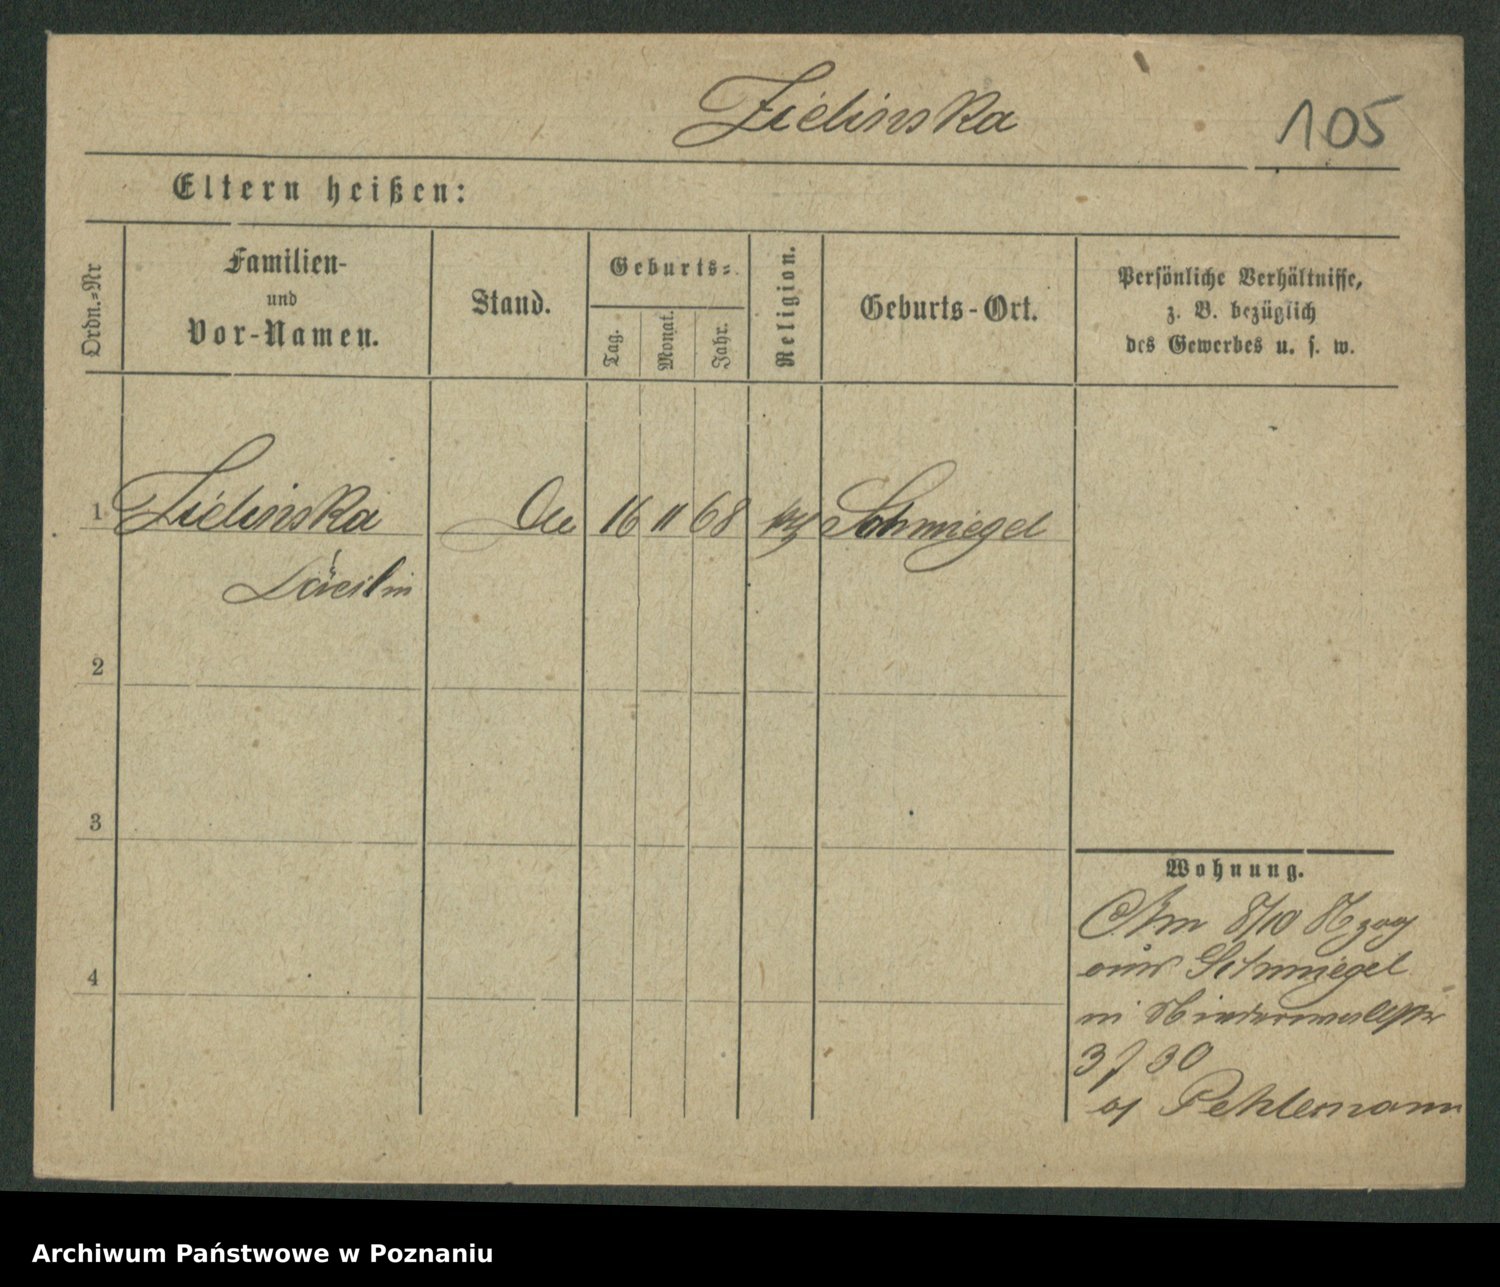 Zielinska
105
Eltern heißen:
Ordn.=Nr
Familien-
und
Vor-Namen.
Stand.
Geburts=
Tag.
Monat.
Jahr.
Religion.
Geburts-Ort.
Persönliche Verhältnisse,
z. B. bezüglich
des Gewerbes u. s. w.
1 Zielinska 16 11 68 Schmiegel
Cäcilin
2
3
4
Wohnung.
8/10
aus Schmiegel
in
30
Pehlemann
Archiwum Państwowe w Poznaniu